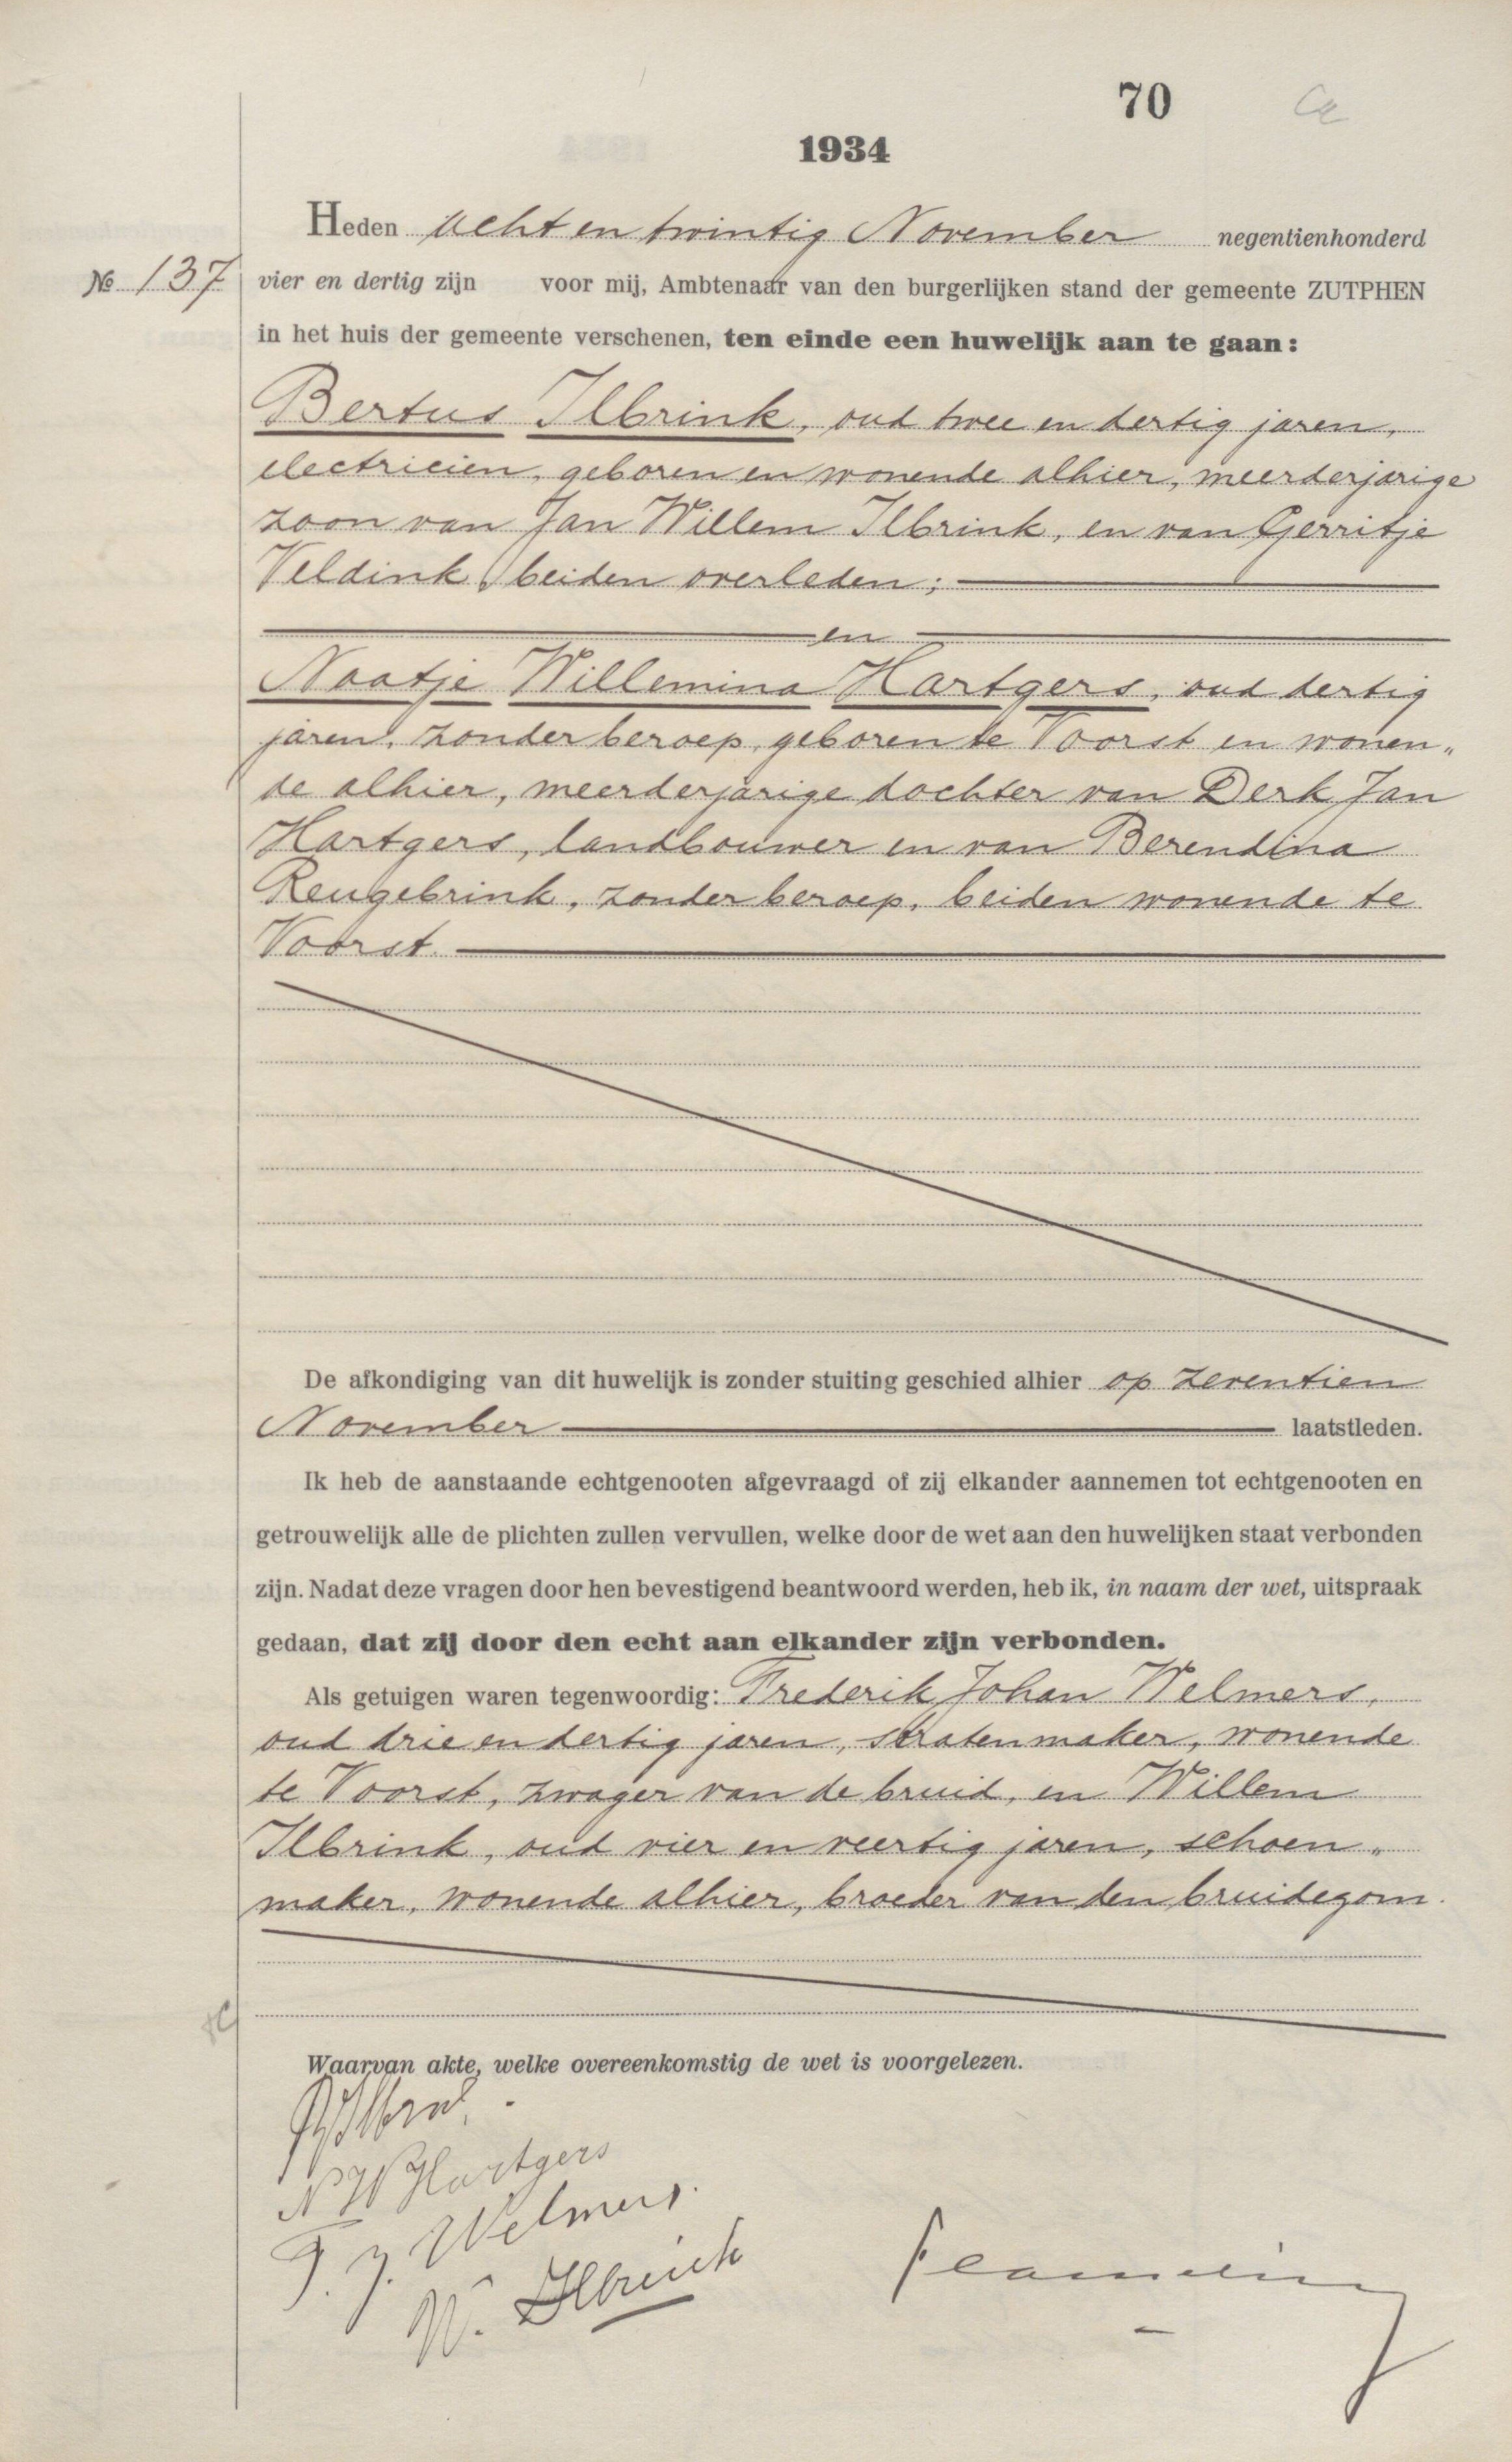 70
1934
Heden acht en twintig November negentienhonderd
No 137 vier en dertig zijn voor mij, Ambtenaar van den burgerlijken stand der gemeente ZUTPHEN
in het huis der gemeente verschenen, ten einde een huwelijk aan te gaan:
Bertus Ilbrink, oud twee en dertig jaren,
electricien, geboren en wonende alhier, meerderjarige
zoon van Jan Willem Ilbrink, en van Gerritje
Veldink, beiden overleden;
en
Naatje Willemina Hartgers, oud dertig
jaren, zonder beroep, geboren te Voorst en wonen„
de alhier, meerderjarige dochter van Derk Jan
Hartgers, landbouwer en van Berendina
Reugebrink, zonder beroep, beiden wonende te
Voorst.
De afkondiging van dit huwelijk is zonder stuiting geschied alhier op zeventien
November laatstleden.
Ik heb de aanstaande echtgenooten afgevraagd of zij elkander aannemen tot echtgenooten en
getrouwelijk alle de plichten zullen vervullen, welke door de wet aan den huwelijken staat verbonden
zijn. Nadat deze vragen door hen bevestigend beantwoord werden, heb ik, in naam der wet, uitspraak
gedaan, dat zij door den echt aan elkander zijn verbonden.
Als getuigen waren tegenwoordig: Frederik Johan Welmers,
oud drie en dertig jaren, stratenmaker, wonende
te Voorst, zwager van de bruid, en Willem
Ilbrink, oud vier en veertig jaren, schoen„
maker, wonende alhier, broeder van den bruidegom.
Waarvan akte, welke overeenkomstig de wet is voorgelezen.
N W Hartgers
F. J. Welmers.
W. Ilbrink